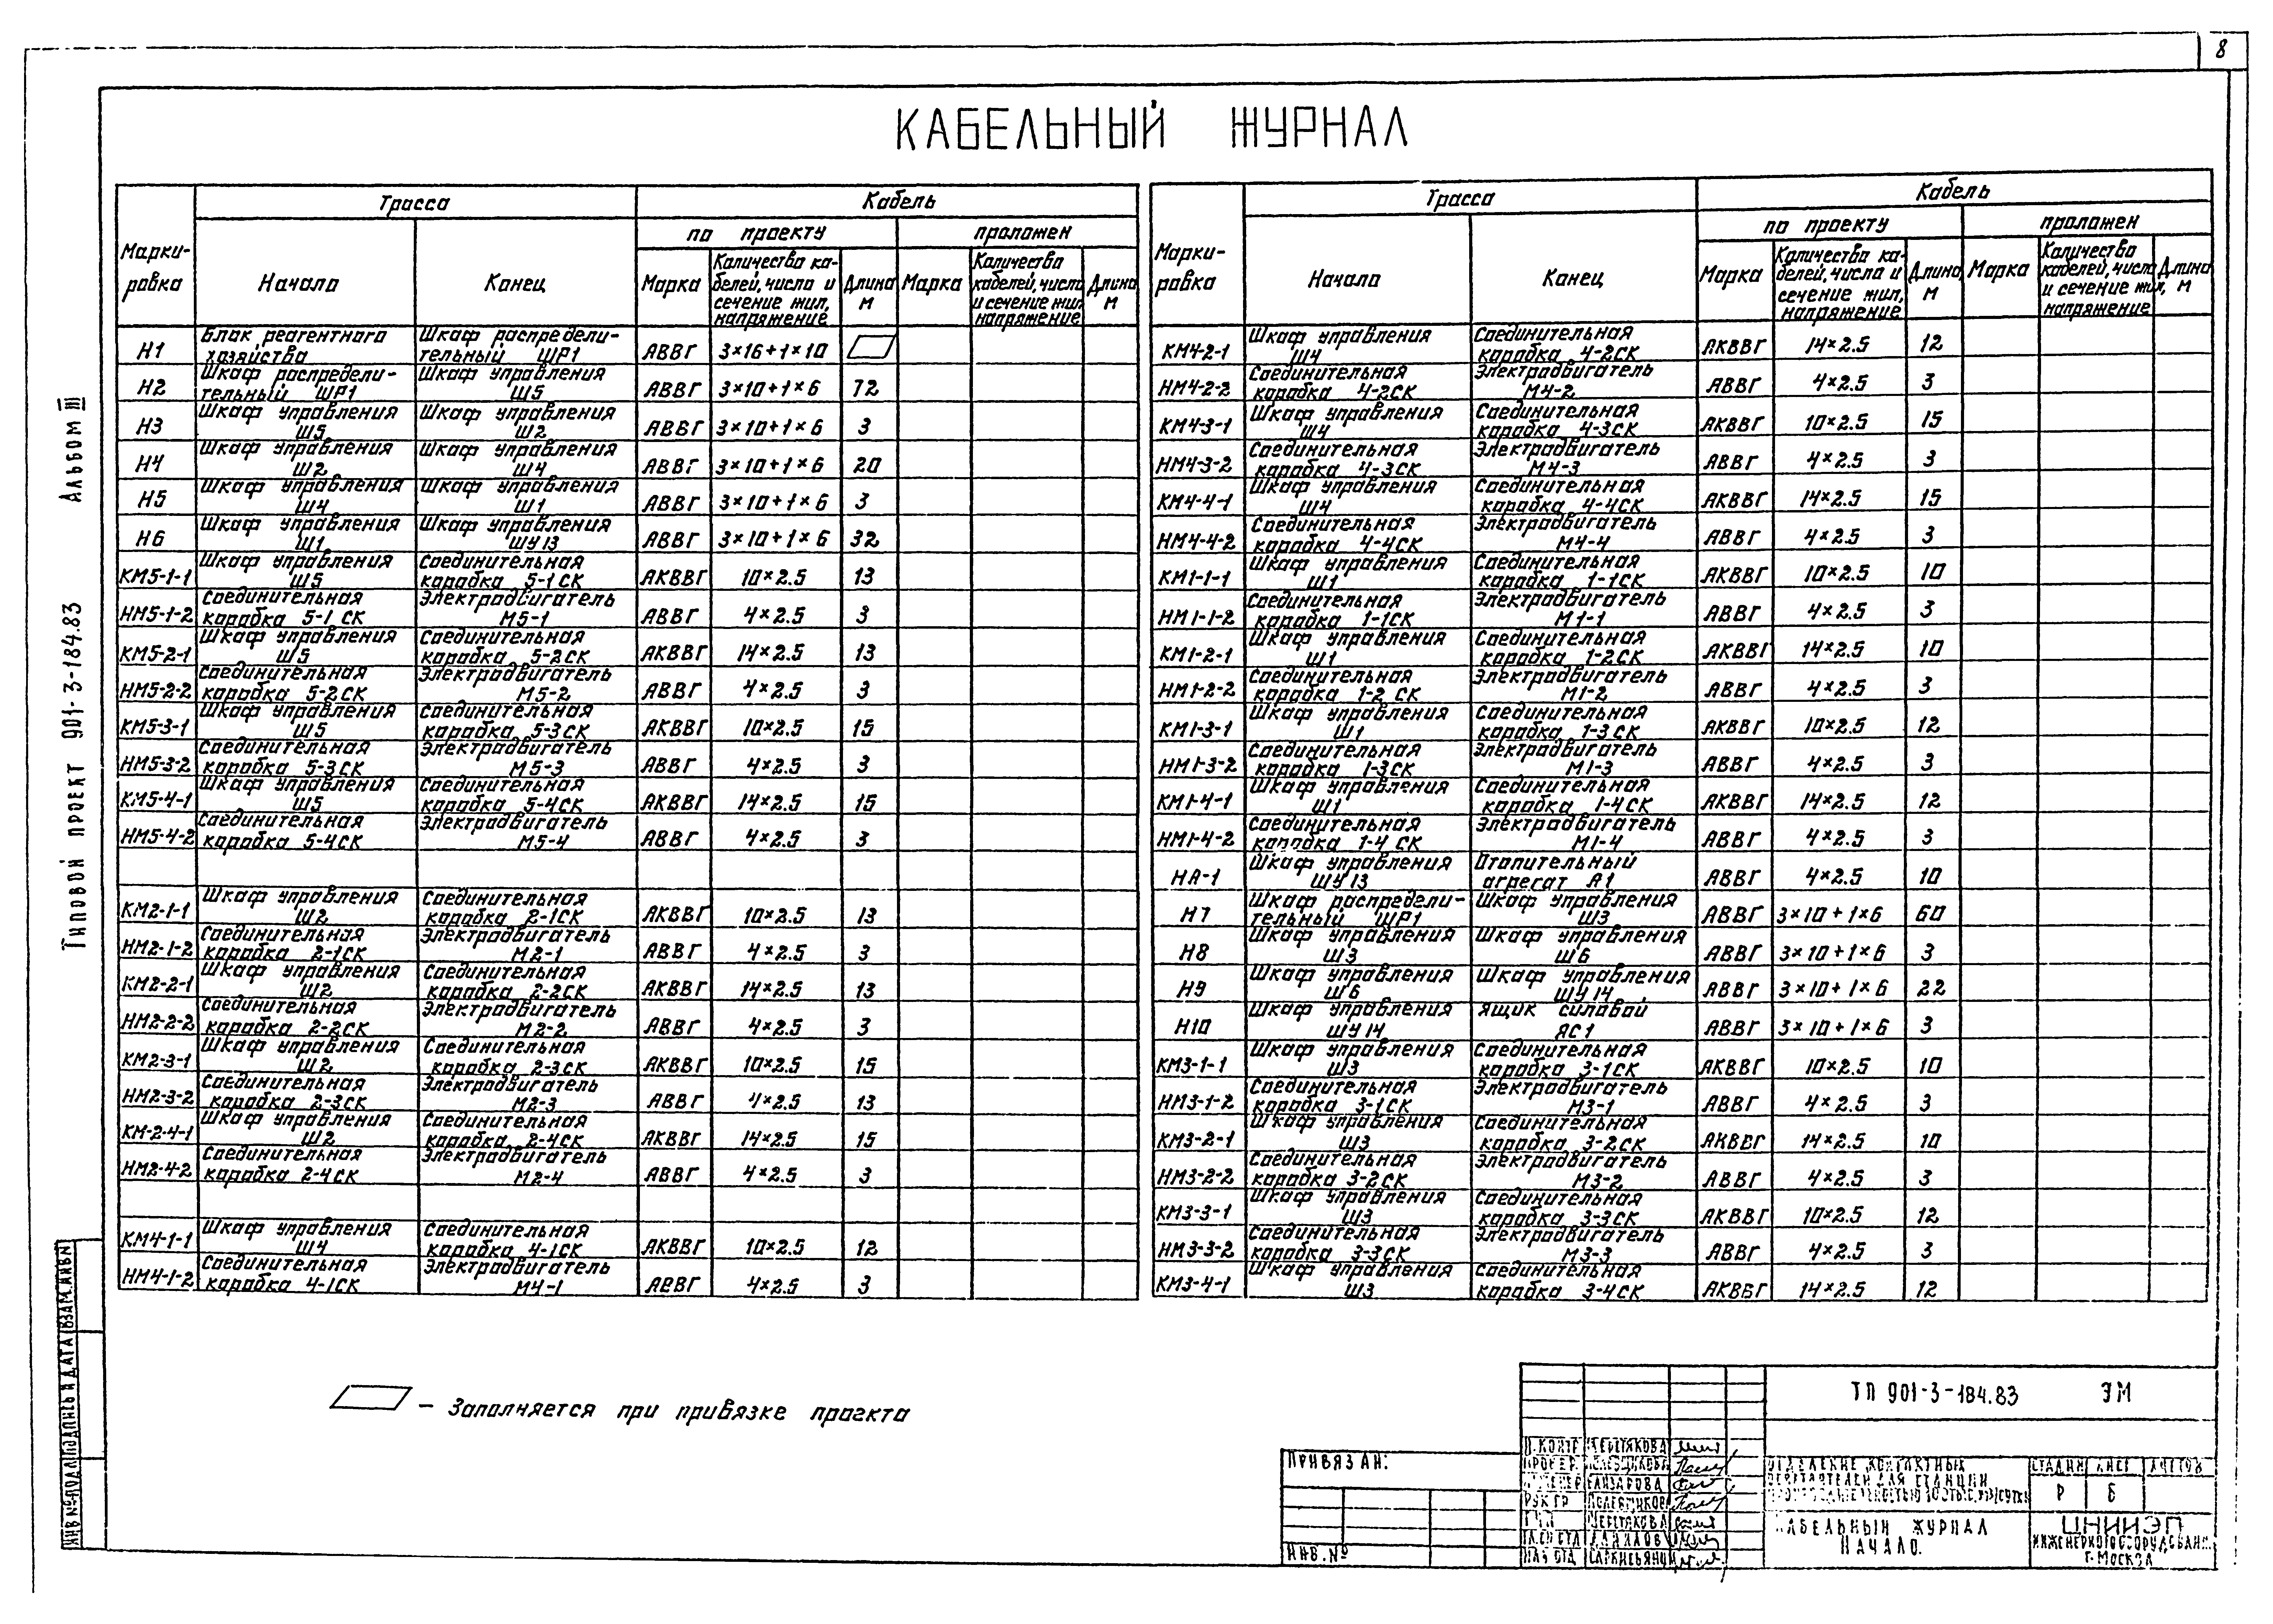 8
КАБЕЛЬНЫЙ ЖУРНАЛ
Альбом III
Типовой проект 901-3-184.83
Марки-ровка | Трасса | Кабель
по проекту | проложен
Начало | Конец | Марка | Количество ка-белей, число и сечение жил, напряжение | Длина м | Марка | Количество кабелей, число и сечение жил, напряжение | Длина м
Н1 | Блок реагентного хозяйства | Шкаф распредели-тельный ШР1 | АВВГ | 3×16+1×10
Н2 | Шкаф распредели-тельный ШР1 | Шкаф управления Ш5 | АВВГ | 3×10+1×6 | 72
Н3 | Шкаф управления Ш5 | Шкаф управления Ш2 | АВВГ | 3×10+1×6 | 3
Н4 | Шкаф управления Ш2 | Шкаф управления Ш4 | АВВГ | 3×10+1×6 | 20
Н5 | Шкаф управления Ш4 | Шкаф управления Ш1 | АВВГ | 3×10+1×6 | 3
Н6 | Шкаф управления Ш1 | Шкаф управления ШУ13 | АВВГ | 3×10+1×6 | 32
КМ5-1-1 | Шкаф управления Ш5 | Соединительная коробка 5-1СК | АКВВГ | 10×2.5 | 13
НМ5-1-2 | Соединительная коробка 5-1 СК | Электродвигатель М5-1 | АВВГ | 4×2.5 | 3
КМ5-2-1 | Шкаф управления Ш5 | Соединительная коробка 5-2СК | АКВВГ | 14×2.5 | 13
НМ5-2-2 | Соединительная коробка 5-2СК | Электродвигатель М5-2 | АВВГ | 4×2.5 | 3
КМ5-3-1 | Шкаф управления Ш5 | Соединительная коробка 5-3СК | АКВВГ | 10×2.5 | 15
НМ5-3-2 | Соединительная коробка 5-3СК | Электродвигатель М5-3 | АВВГ | 4×2.5 | 3
КМ5-4-1 | Шкаф управления Ш5 | Соединительная коробка 5-4СК | АКВВГ | 14×2.5 | 15
НМ5-4-2 | Соединительная коробка 5-4СК | Электродвигатель М5-4 | АВВГ | 4×2.5 | 3
КМ2-1-1 | Шкаф управления Ш2 | Соединительная коробка 2-1СК | АКВВГ | 10×2.5 | 13
НМ2-1-2 | Соединительная коробка 2-1СК | Электродвигатель М2-1 | АВВГ | 4×2.5 | 3
КМ2-2-1 | Шкаф управления Ш2 | Соединительная коробка 2-2СК | АКВВГ | 14×2.5 | 13
НМ2-2-2 | Соединительная коробка 2-2СК | Электродвигатель М2-2 | АВВГ | 4×2.5 | 3
КМ2-3-1 | Шкаф управления Ш2 | Соединительная коробка 2-3СК | АКВВГ | 10×2.5 | 15
НМ2-3-2 | Соединительная коробка 2-3СК | Электродвигатель М2-3 | АВВГ | 4×2.5 | 13
КМ-2-4-1 | Шкаф управления Ш2 | Соединительная коробка 2-4СК | АКВВГ | 14×2.5 | 15
НМ2-4-2 | Соединительная коробка 2-4СК | Электродвигатель М2-4 | АВВГ | 4×2.5 | 3
КМ4-1-1 | Шкаф управления Ш4 | Соединительная коробка 4-1СК | АКВВГ | 10×2.5 | 12
НМ4-1-2 | Соединительная коробка 4-1СК | Электродвигатель М4-1 | АВВГ | 4×2.5 | 3
Марки-ровка | Трасса | Кабель
по проекту | проложен
Начало | Конец | Марка | Количество ка-белей, число и сечение жил, напряжение | Длина, м | Марка | Количество кабелей, число и сечение жил, напряжение | Длина, м
КМ4-2-1 | Шкаф управления Ш4 | Соединительная коробка 4-2СК | АКВВГ | 14×2.5 | 12
НМ4-2-2 | Соединительная коробка 4-2СК | Электродвигатель М4-2 | АВВГ | 4×2.5 | 3
КМ4-3-1 | Шкаф управления Ш4 | Соединительная коробка 4-3СК | АКВВГ | 10×2.5 | 15
НМ4-3-2 | Соединительная коробка 4-3СК | Электродвигатель М4-3 | АВВГ | 4×2.5 | 3
КМ4-4-1 | Шкаф управления Ш4 | Соединительная коробка 4-4СК | АКВВГ | 14×2.5 | 15
НМ4-4-2 | Соединительная коробка 4-4СК | Электродвигатель М4-4 | АВВГ | 4×2.5 | 3
КМ1-1-1 | Шкаф управления Ш1 | Соединительная коробка 1-1СК | АКВВГ | 10×2.5 | 10
НМ1-1-2 | Соединительная коробка 1-1СК | Электродвигатель М1-1 | АВВГ | 4×2.5 | 3
КМ1-2-1 | Шкаф управления Ш1 | Соединительная коробка 1-2СК | АКВВГ | 14×2.5 | 10
НМ1-2-2 | Соединительная коробка 1-2 СК | Электродвигатель М1-2 | АВВГ | 4×2.5 | 3
КМ1-3-1 | Шкаф управления Ш1 | Соединительная коробка 1-3СК | АКВВГ | 10×2.5 | 12
НМ1-3-2 | Соединительная коробка 1-3СК | Электродвигатель М1-3 | АВВГ | 4×2.5 | 3
КМ1-4-1 | Шкаф управления Ш1 | Соединительная коробка 1-4СК | АКВВГ | 14×2.5 | 12
НМ1-4-2 | Соединительная коробка 1-4 СК | Электродвигатель М1-4 | АВВГ | 4×2.5 | 3
НА-1 | Шкаф управления ШУ13 | Отопительный агрегат А1 | АВВГ | 4×2.5 | 10
Н7 | Шкаф распредели-тельный ШР1 | Шкаф управления Ш3 | АВВГ | 3×10+1×6 | 60
Н8 | Шкаф управления Ш3 | Шкаф управления Ш6 | АВВГ | 3×10+1×6 | 3
Н9 | Шкаф управления Ш6 | Шкаф управления ШУ14 | АВВГ | 3×10+1×6 | 22
Н10 | Шкаф управления ШУ14 | Ящик силовой ЯС1 | АВВГ | 3×10+1×6 | 3
КМ3-1-1 | Шкаф управления Ш3 | Соединительная коробка 3-1СК | АКВВГ | 10×2.5 | 10
НМ3-1-2 | Соединительная коробка 3-1СК | Электродвигатель М3-1 | АВВГ | 4×2.5 | 3
КМ3-2-1 | Шкаф управления Ш3 | Соединительная коробка 3-2СК | АКВВГ | 14×2.5 | 10
НМ3-2-2 | Соединительная коробка 3-2СК | Электродвигатель М3-2 | АВВГ | 4×2.5 | 3
КМ3-3-1 | Шкаф управления Ш3 | Соединительная коробка 3-3СК | АКВВГ | 10×2.5 | 12
НМ3-3-2 | Соединительная коробка 3-3СК | Электродвигатель М3-3 | АВВГ | 4×2.5 | 3
КМ3-4-1 | Шкаф управления Ш3 | Соединительная коробка 3-4СК | АКВВГ | 14×2.5 | 12
– Заполняется при привязке проекта
ИНВ № ПОДЛ | ПОДПИСЬ И ДАТА | ВЗАМ. ИНВ N
ПРИВЯЗАН:
ИНВ. №
ТП 901-3-184.83 ЭМ
Н. КОНТР
РУК ГР
ГИП
НАЧ ОТД
ОТДЕЛЕНИЕ КОНТАКТНЫХ
ОСВЕТЛИТЕЛЕЙ ДЛЯ СТАНЦИИ
СТАДИЯ | ЛИСТ | ЛИСТОВ
Р | 6
КАБЕЛЬНЫЙ ЖУРНАЛ
НАЧАЛО.
ЦНИИЭП
ИНЖЕНЕРНОГО ОБОРУДОВАНИЯ
Г. МОСКВА